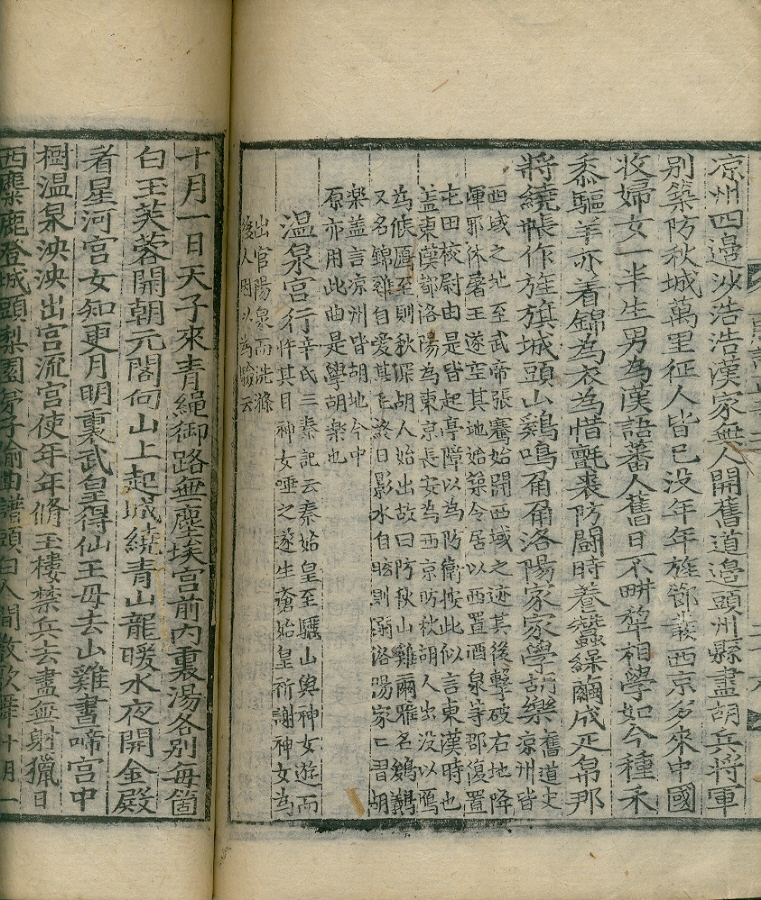 凉州四邊沙浩浩漢家無人開舊道邊頭州縣盡胡兵將軍
別築防秋城萬里征人皆已没年年旌節發西京多來中國
收婦女一半生男為漢語蕃人舊日不耕犂相學如今種禾
黍驅羊亦着錦為衣為惜氈裘防鬪時養蠶繰繭成疋帛那
將繞帳作旌旗城頭山鷄鳴角角洛陽家家學胡樂
舊道史
凉州皆
西域之地至武帝張騫始開西域之迹其後擊破右地降
渾耶休屠王遂空其地始築令居以西置酒泉等郡復置
屯田校尉由是皆起亭障以為防衛按此似言東漢時也
盖東漢都洛陽為東京長安為西京防秋胡人出没以鴈
為候鴈至則秋深胡人始出故曰防秋山雞爾雅名鷂鷯
又名錦雞自愛其毛終日影水自眩則溺洛陽家〻習胡
樂盖言凉州皆胡地今中
原亦用此曲是學胡樂也
温泉宫行
辛氏三秦記云秦始皇至驪山與神女遊而
忤其目神女唾之遂生瘡始皇祈謝神女為
出官陽泉而洗滌
後人因以為驗云
十月一日天子來青繩御路無塵埃宫前内裏湯各别每箇
白玉芙蓉開朝元閣向山上起城繞青山龍暖水夜開金殿
看星河宫女知更月明裏武皇得仙王母去山雞晝啼宫中
樹温泉泱泱出宫流宫使年年脩玉樓禁兵去盡無射獵日
西麋鹿登城頭梨園弟子偷曲譜頭白人間教歌舞十月一